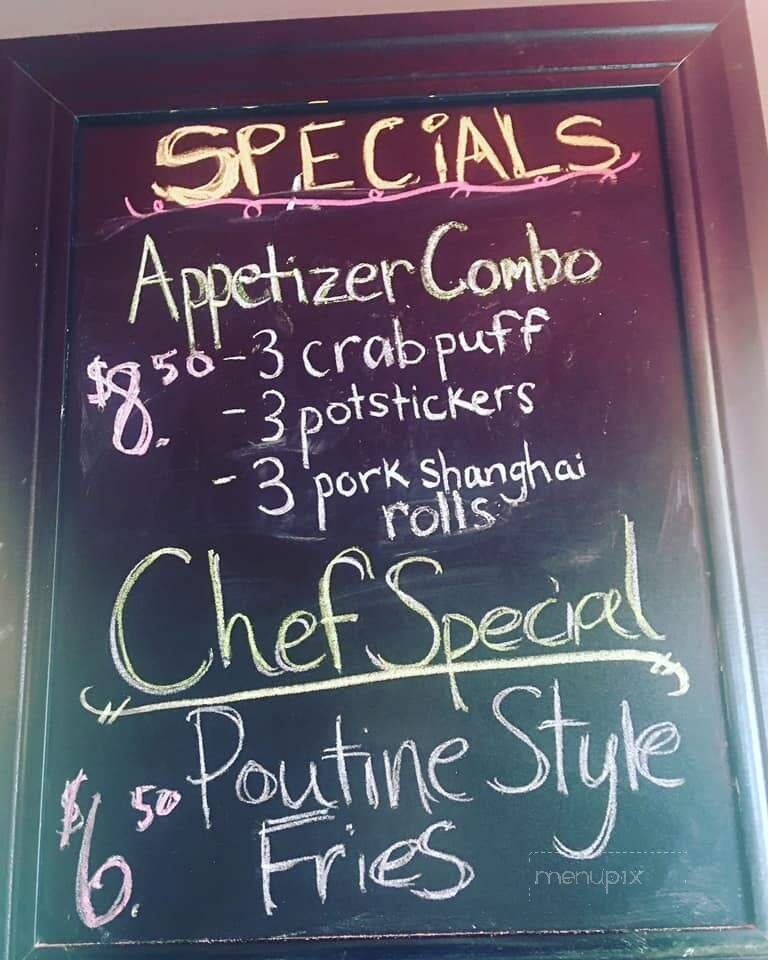 SPECIALS
Appetizer Combo
$8.50 - 3 crab puff
- 3 potstickers
- 3 pork shanghai
rolls
Chef Special
Poutine Style
$6.50 Fries
menupix